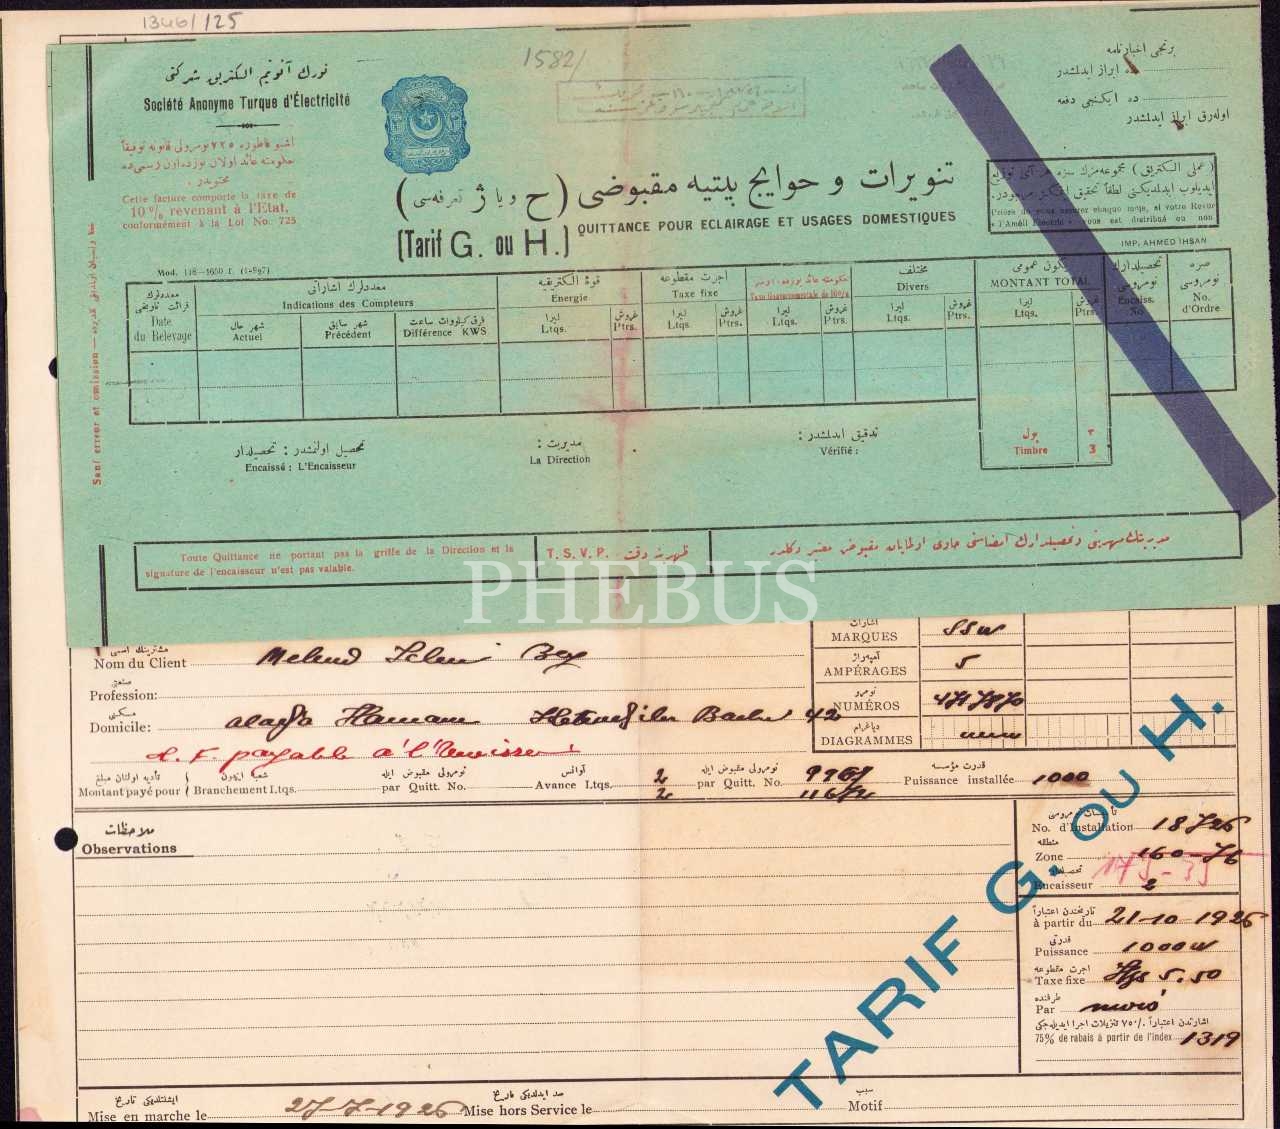 1346/125
1582/
تورك آنونيم الكتريق شركتى
Société Anonyme Turque d'Électricité
اشبو فاطوره ٧٢٥ نومرولى قانونه توفيقاً
حكومته عائد اولان يوزده اون رسمى ده
محتويدر
Cette facture comporte la taxe de
10% revenant à l'Etat,
conformément à la Loi No. 725
برنجى اخبارنامه
ده ابراز ايدلمشدر
ده ايكنجى دفعه
اوله‌رق ابراز ايدلمشدر
تنويرات و حوايج بيتيه مقبوضى (ح و يا ژ تعرفه‌سى)
QUITTANCE POUR ECLAIRAGE ET USAGES DOMESTIQUES
(Tarif G. ou H.)
IMP. AHMED IHSAN
Mod. 118-1650 f. (1-927)
Sauf erreur et omission
Date du Relevage
معددلرك اشاراتى
Indications des Compteurs
شهر حال
Actuel
شهر سابق
Précédent
فرق كيلووات ساعت
Différence KWS
قوۀ الكتريقيه
Energie
ليرا Ltqs.
غروش Ptrs.
اجرت مقطوعه
Taxe fixe
ليرا Ltqs.
غروش Ptrs.
حكومته عائد يوزده اون رسم
Taxe Gouvernementale de 10%
ليرا Ltqs.
غروش Ptrs.
مختلف
Divers
ليرا Ltqs.
غروش Ptrs.
يكون عمومى
MONTANT TOTAL
ليرا Ltqs.
Ptrs.
تحصيلدارك نومروسى
Encaiss. No
صره نومروسى
No. d'Ordre
پول ٣
Timbre 3
تحصيل اولنمشدر : تحصيلدار
Encaissé : L'Encaisseur
مديريت :
La Direction
تدقيق ايدلمشدر :
Vérifié :
Toute Quittance ne portant pas la griffe de la Direction et la
signature de l'encaisseur n'est pas valable.
T. S. V. P. ظهرينه دقت
مديريتك مهرينى و تحصيلدارك امضاسنى حاوى اولمايان مقبوض معتبر دكلدر
PHEBUS
Nom du Client
Bey
Profession:
Domicile: Hamam 42
payable à l'
اشارات
MARQUES SSW
آمپراژ
AMPÉRAGES 5
نومرو
NUMÉROS
دياغرام
DIAGRAMMES
Montant payé pour
Branchement Ltqs.
par Quitt. No.
آوانس
Avance Ltqs. 2
2
par Quitt. No.
قدرت مؤسسه
Puissance installée 1000
ملاحظات
Observations
No. d'Installation 18726
منطقه
Zone 160-76
175-35
Encaisseur 2
تاريخندن اعتباراً
à partir du 21-10-1926
قدرتى
Puissance 1000 W
اجرت مقطوعه
Taxe fixe 5.50
طرفنده
Par
75% de rabais à partir de l'index 1319
TARIF G. OU H.
ايشلتلديكى تاريخ
Mise en marche le 27-7-1926
سد ايدلديكى تاريخ
Mise hors Service le
سبب
Motif